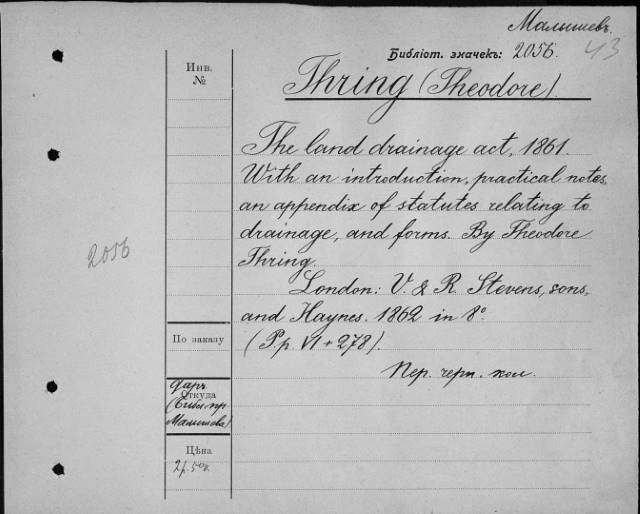 Малышевъ.
Библіот. значекъ: 2056. 43
Инв.
№
Thring (Theodore).
The land drainage act, 1861.
With an introduction, practical notes,
an appendix of statutes relating to
drainage, and forms. By Theodore
Thring.
2056
London: V. & R. Stevens, sons,
and Haynes. 1862 in 8º
(P.p. VI + 278).
По заказу
Пер. черн. кол.
Откуда
Даръ
Малышева)
Цѣна
2р. 50к.